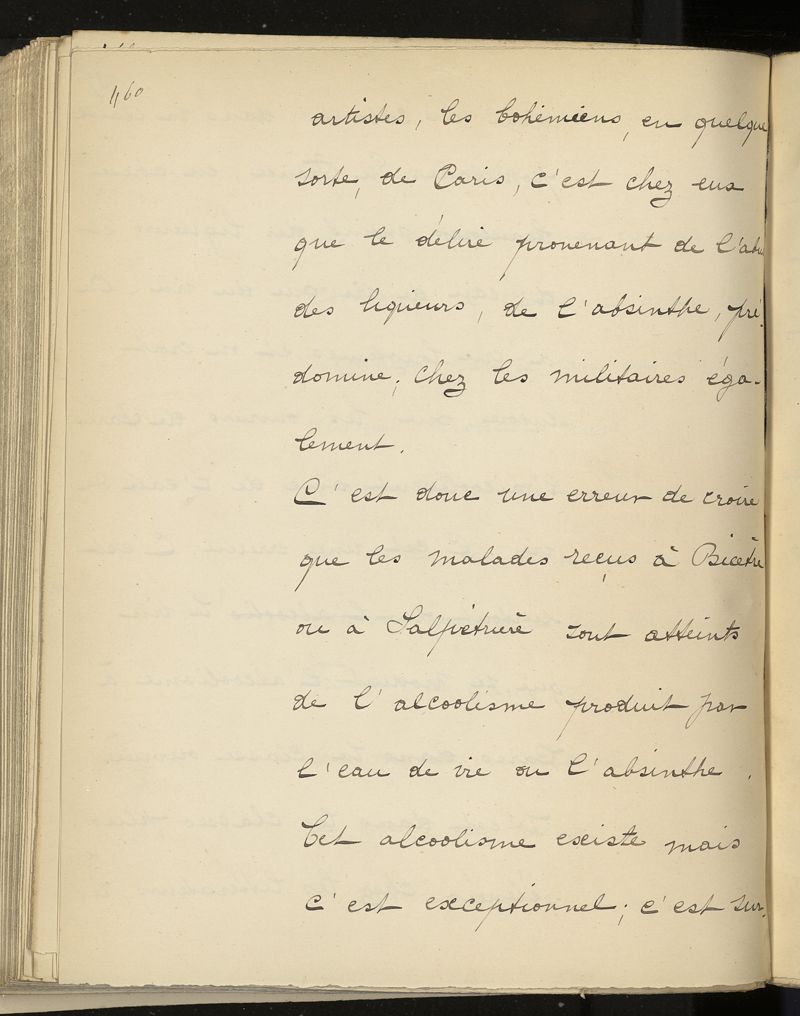 460
artistes, les bohémiens, en quelque
sorte, de Paris, c'est chez eux
que le délire provenant de l'abu
des liqueurs, de l'absinthe, pré-
domine, chez les militaires éga-
lement.
C'est donc une erreur de croire
que les malades reçus à Bicêtre
ou à Salpétrière sont atteints
de l'alcoolisme produit par
l'eau de vie ou l'absinthe.
Cet alcoolisme existe mais
c'est exceptionnel; c'est sur-